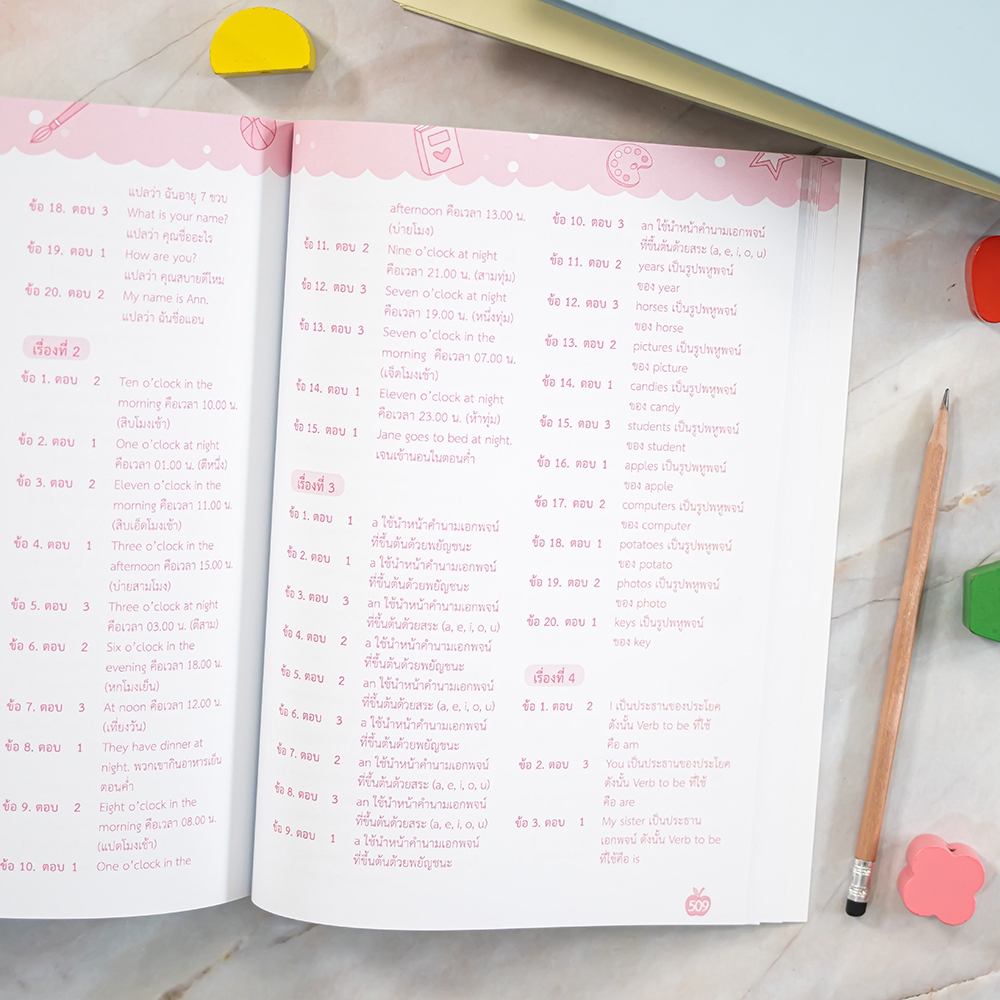 แปลว่า ฉันอายุ 7 ขวบ
ข้อ 18. ตอบ 3 What is your name?
แปลว่า คุณชื่ออะไร
ข้อ 19. ตอบ 1 How are you?
แปลว่า คุณสบายดีไหม
ข้อ 20. ตอบ 2 My name is Ann.
แปลว่า ฉันชื่อแอน
เรื่องที่ 2
ข้อ 1. ตอบ 2 Ten o'clock in the
morning คือเวลา 10.00 น.
(สิบโมงเช้า)
ข้อ 2. ตอบ 1 One o'clock at night
คือเวลา 01.00 น. (ตีหนึ่ง)
ข้อ 3. ตอบ 2 Eleven o'clock in the
morning คือเวลา 11.00 น.
(สิบเอ็ดโมงเช้า)
ข้อ 4. ตอบ 1 Three o'clock in the
afternoon คือเวลา 15.00 น.
(บ่ายสามโมง)
ข้อ 5. ตอบ 3 Three o'clock at night
คือเวลา 03.00 น. (ตีสาม)
ข้อ 6. ตอบ 2 Six o'clock in the
evening คือเวลา 18.00 น.
(หกโมงเย็น)
ข้อ 7. ตอบ 3 At noon คือเวลา 12.00 น.
(เที่ยงวัน)
ข้อ 8. ตอบ 1 They have dinner at
night. พวกเขากินอาหารเย็น
ตอนค่ำ
ข้อ 9. ตอบ 2 Eight o'clock in the
morning คือเวลา 08.00 น.
(แปดโมงเช้า)
ข้อ 10. ตอบ 1 One o'clock in the
afternoon คือเวลา 13.00 น.
(บ่ายโมง)
ข้อ 11. ตอบ 2 Nine o'clock at night
คือเวลา 21.00 น. (สามทุ่ม)
ข้อ 12. ตอบ 3 Seven o'clock at night
คือเวลา 19.00 น. (หนึ่งทุ่ม)
ข้อ 13. ตอบ 3 Seven o'clock in the
morning คือเวลา 07.00 น.
(เจ็ดโมงเช้า)
ข้อ 14. ตอบ 1 Eleven o'clock at night
คือเวลา 23.00 น. (ห้าทุ่ม)
ข้อ 15. ตอบ 1 Jane goes to bed at night.
เจนเข้านอนในตอนค่ำ
เรื่องที่ 3
ข้อ 1. ตอบ 1 a ใช้นำหน้าคำนามเอกพจน์
ที่ขึ้นต้นด้วยพยัญชนะ
ข้อ 2. ตอบ 1 a ใช้นำหน้าคำนามเอกพจน์
ที่ขึ้นต้นด้วยพยัญชนะ
ข้อ 3. ตอบ 3 an ใช้นำหน้าคำนามเอกพจน์
ที่ขึ้นต้นด้วยสระ (a, e, i, o, u)
ข้อ 4. ตอบ 2 a ใช้นำหน้าคำนามเอกพจน์
ที่ขึ้นต้นด้วยพยัญชนะ
ข้อ 5. ตอบ 2 an ใช้นำหน้าคำนามเอกพจน์
ที่ขึ้นต้นด้วยสระ (a, e, i, o, u)
ข้อ 6. ตอบ 3 a ใช้นำหน้าคำนามเอกพจน์
ที่ขึ้นต้นด้วยพยัญชนะ
ข้อ 7. ตอบ 2 an ใช้นำหน้าคำนามเอกพจน์
ที่ขึ้นต้นด้วยสระ (a, e, i, o, u)
ข้อ 8. ตอบ 3 an ใช้นำหน้าคำนามเอกพจน์
ที่ขึ้นต้นด้วยสระ (a, e, i, o, u)
ข้อ 9. ตอบ 1 a ใช้นำหน้าคำนามเอกพจน์
ที่ขึ้นต้นด้วยพยัญชนะ
ข้อ 10. ตอบ 3 an ใช้นำหน้าคำนามเอกพจน์
ที่ขึ้นต้นด้วยสระ (a, e, i, o, u)
ข้อ 11. ตอบ 2 years เป็นรูปพหูพจน์
ของ year
ข้อ 12. ตอบ 3 horses เป็นรูปพหูพจน์
ของ horse
ข้อ 13. ตอบ 2 pictures เป็นรูปพหูพจน์
ของ picture
ข้อ 14. ตอบ 1 candies เป็นรูปพหูพจน์
ของ candy
ข้อ 15. ตอบ 3 students เป็นรูปพหูพจน์
ของ student
ข้อ 16. ตอบ 1 apples เป็นรูปพหูพจน์
ของ apple
ข้อ 17. ตอบ 2 computers เป็นรูปพหูพจน์
ของ computer
ข้อ 18. ตอบ 1 potatoes เป็นรูปพหูพจน์
ของ potato
ข้อ 19. ตอบ 2 photos เป็นรูปพหูพจน์
ของ photo
ข้อ 20. ตอบ 1 keys เป็นรูปพหูพจน์
ของ key
เรื่องที่ 4
ข้อ 1. ตอบ 2 I เป็นประธานของประโยค
ดังนั้น Verb to be ที่ใช้
คือ am
ข้อ 2. ตอบ 3 You เป็นประธานของประโยค
ดังนั้น Verb to be ที่ใช้
คือ are
ข้อ 3. ตอบ 1 My sister เป็นประธาน
เอกพจน์ ดังนั้น Verb to be
ที่ใช้คือ is
509